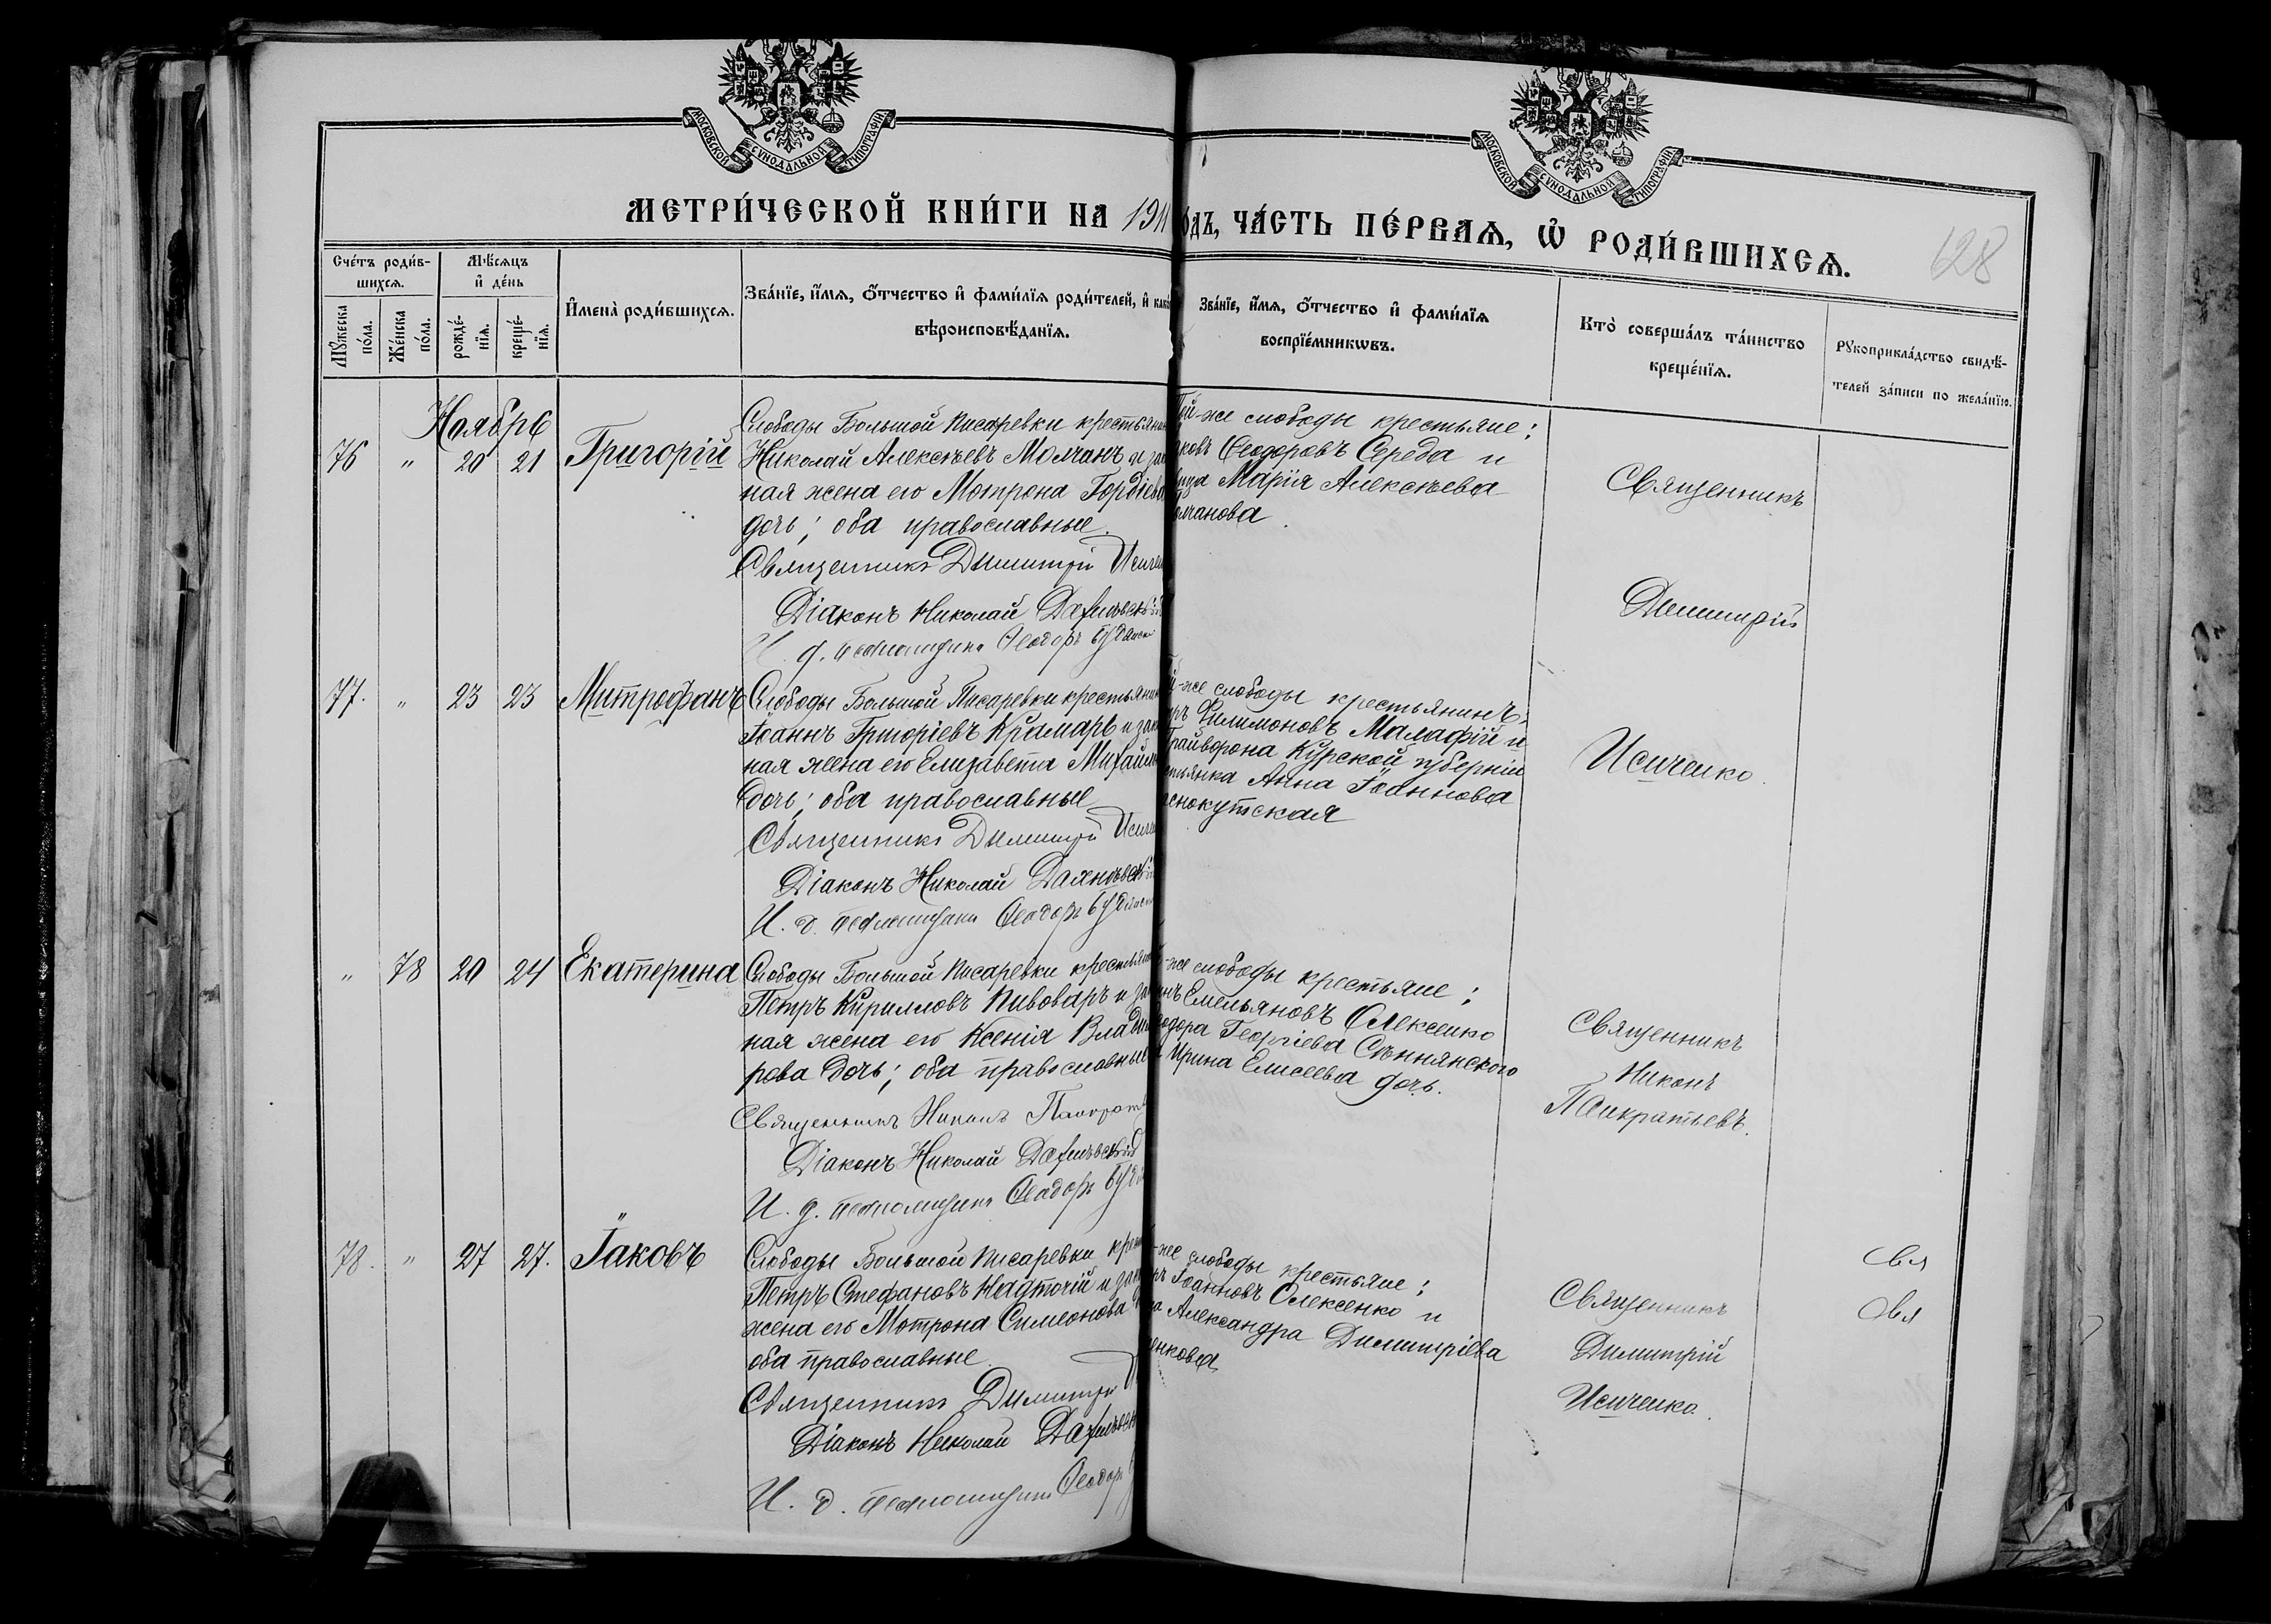 МОСКОВСКОЙ СУНОДАЛЬНОЙ ТИПОГРАФІИ
МОСКОВСКОЙ СУНОДАЛЬНОЙ ТИПОГРАФІИ
МЕТРИ́ЧЕСКОЙ КНИ́ГИ НА 191
ОДЪ, ЧА́СТЬ ПЕ́РВАѦ, Ѡ҆ РОДИ́ВШИХСѦ.
128
Сче́тъ роди́в-
шихсѧ.
Мꙋ́жеска по́ла.
Же́нска по́ла.
Мѣ́сѧцъ
и҆ де́нь
рожде́-нїѧ.
креще́-нїѧ.
И҆мена̀ роди́вшихсѧ.
Зва́нїе, и҆́мѧ, ѻ҆́тчество и҆ фами́лїѧ роди́телей, и҆ как
вѣроисповѣ́данїѧ.
Зва́нїе, и҆́мѧ, ѻ҆́тчество и҆ фами́лїѧ
воспрїе́мникѡвъ.
Кто̀ соверша́лъ та́инство
креще́нїѧ.
Рꙋкоприкла́дство свидѣ́-
телей за́писи по жела́нїю.
Ноябрь
76 " 20 21 Григорій
Слободы Большой Писаревки крестьянин
Николай Алексѣевъ Молчанъ и зак
ная жена его Мотрона Гордіева
дочь; оба православные.
Священникъ Димитрій Исичен
Діаконъ Николай
И. д. псаломщика Ѳеодоръ
ой-же слободы крестьяне:
ковъ Ѳеодоровъ Середа и
вица Марія Алексѣева
олчанова
Священникъ
Димитрій
77. " 23 23 Митрофанъ
Слободы Большой Писаревки крестьянин
Іоаннъ Григоріевъ Крамарь и зак
ная жена его Елизавета Михайло
дочь; оба православные
Священникъ Димитрій Исиче
Діаконъ Николай
И. д. псаломщика Ѳеодоръ
й-же слободы крестьянинъ:
ръ Филимоновъ Малафій и
Грайворона Курской губерніи
стьянка Анна Іоаннова
снокутская
Исиченко.
" 78 20 24 Екатерина
Слободы Большой Писаревки крестьян
Петръ Кирилловъ Пивоваръ и зак
ная жена его Ксенія Влади
рова дочь; оба православные
Священникъ Никонъ Панкрать
Діаконъ Николай
И. д. псаломщика Ѳеодоръ
-же слободы крестьяне;
нъ Емельяновъ Олексенко
одора Георгіева Сѣннянского
Ирина Елисеева дочь.
Священникъ
Никонъ
Панкратьевъ.
78. " 27 27. Іаковъ
Слободы Большой Писаревки крест
Петръ Стефановъ Надточій и зак
жена его Мотрона Симеонова
оба православные.
Священникъ Димитрій
Діаконъ Николай
И. д. псаломщика Ѳеодоръ
-же слободы крестьяне;
нъ Іоанновъ Олексенко и
ца Александра Димитріева
енкова
Священникъ
Димитрій
Исиченко.